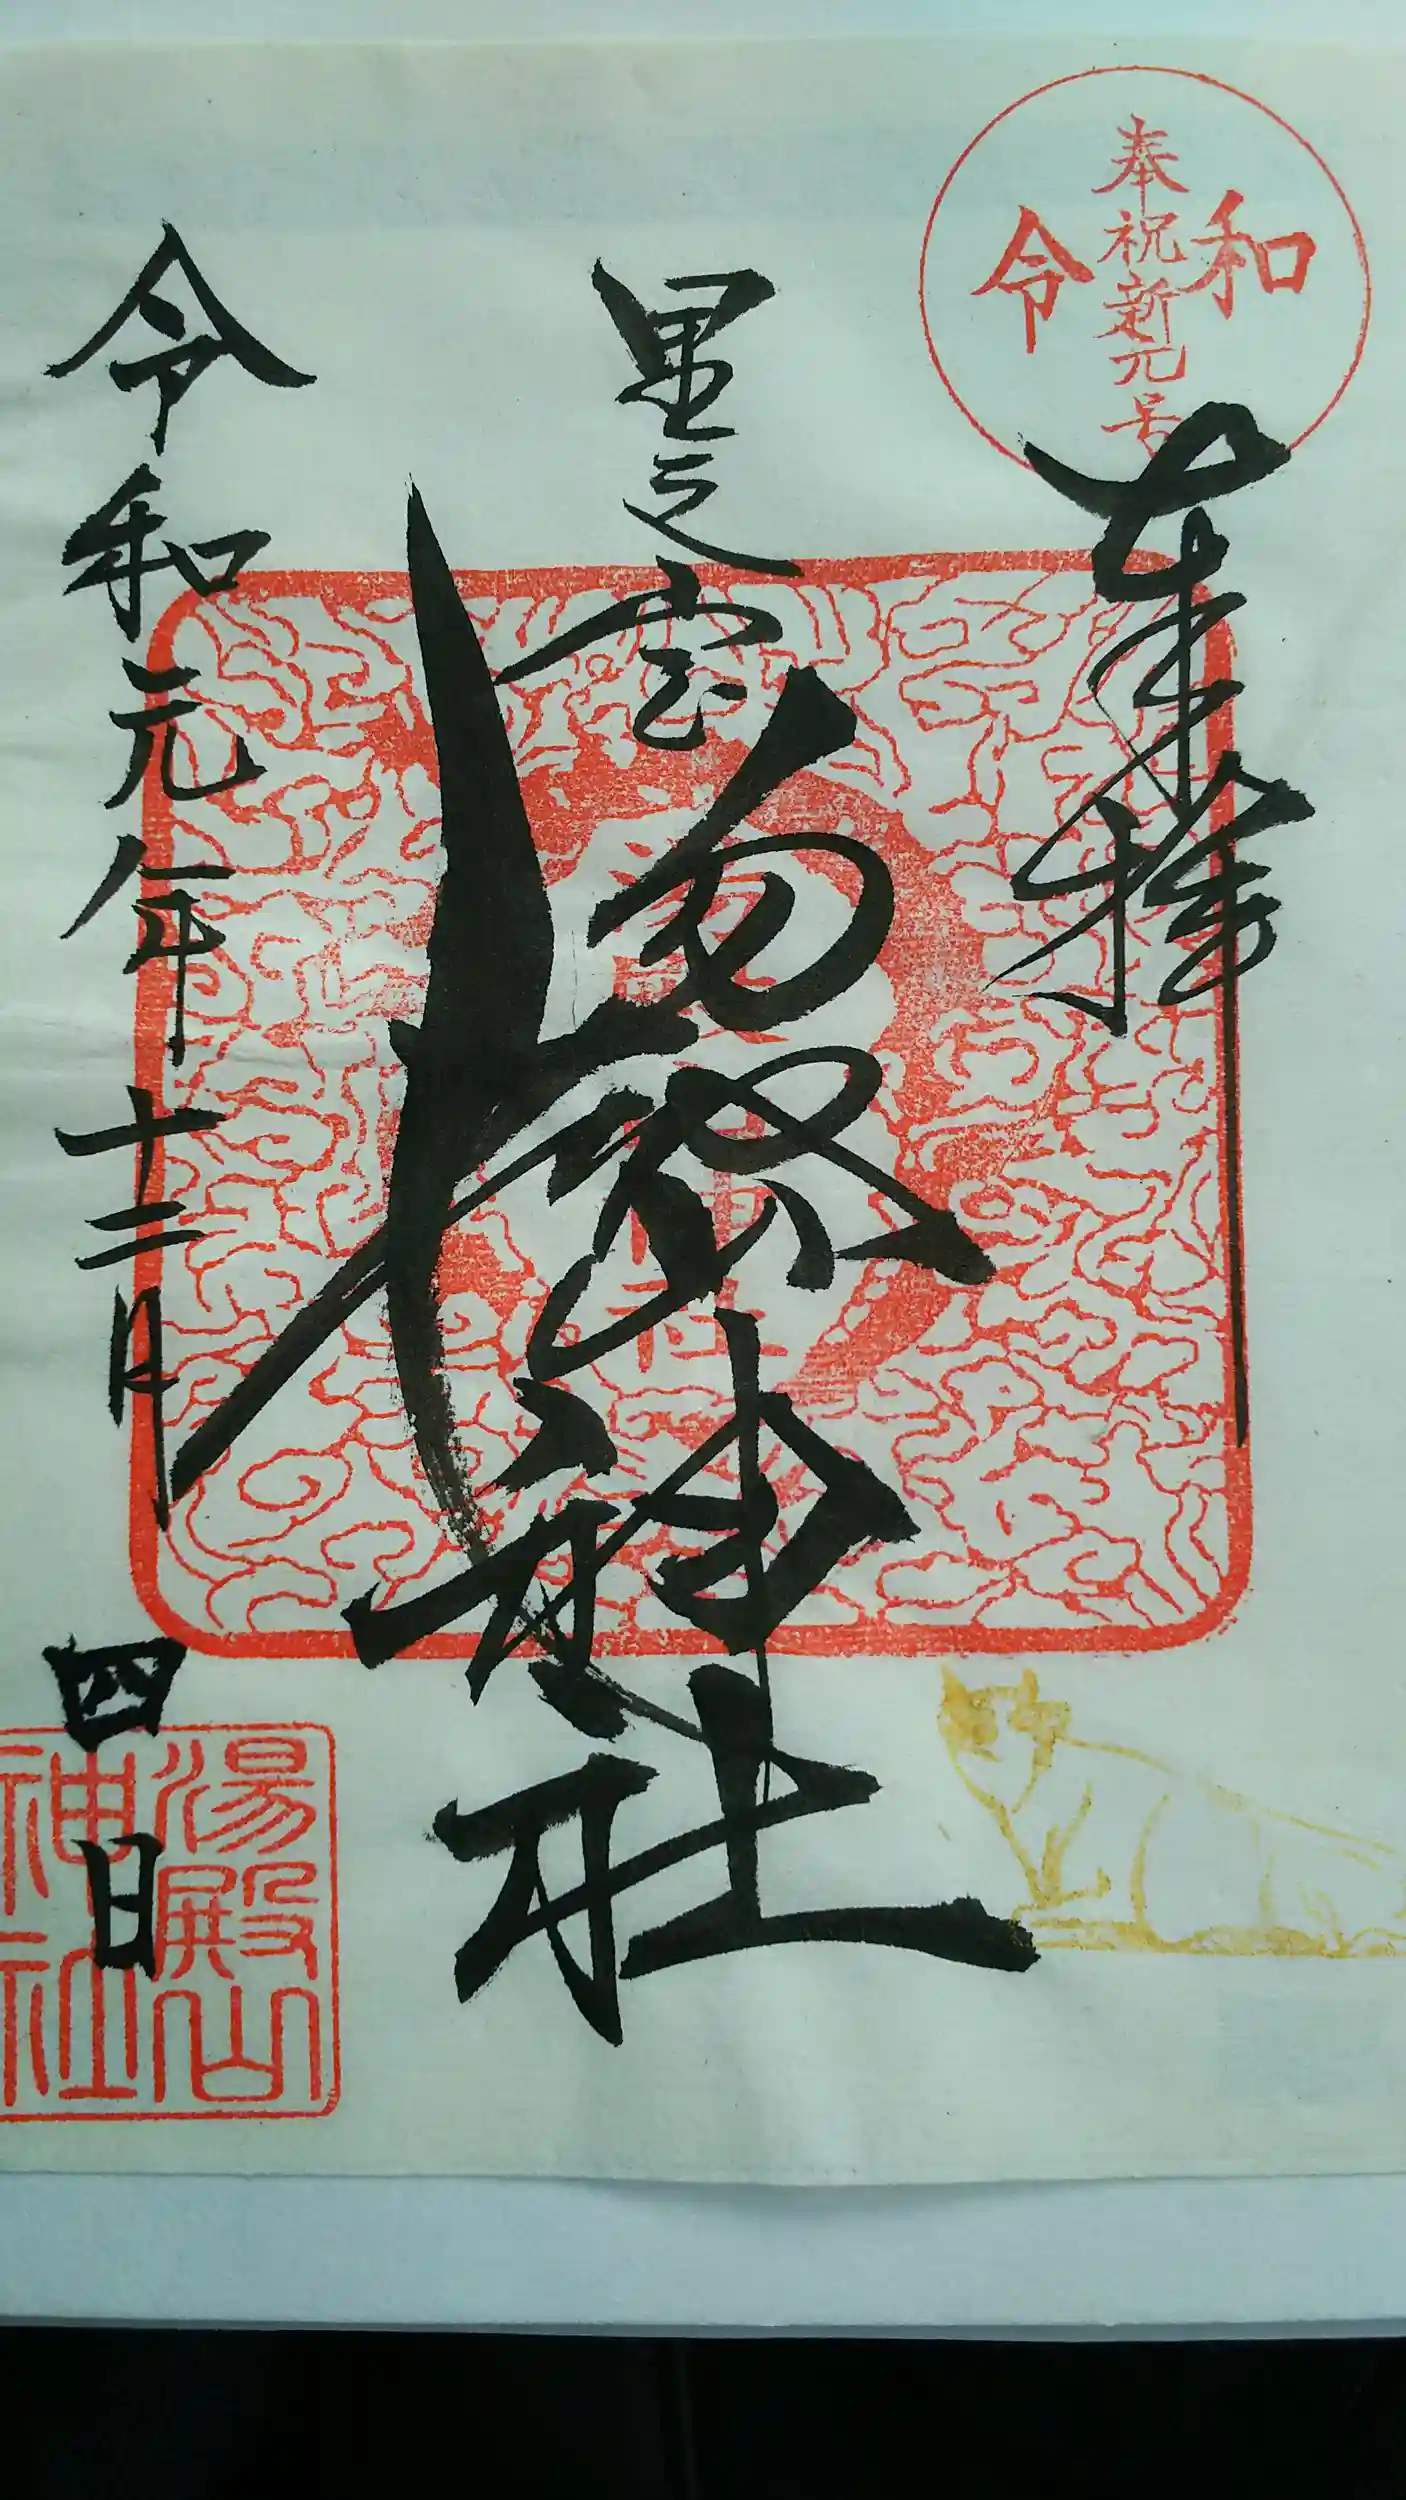 奉祝新元号
令和
奉拝
里之宮
湯殿山神社
令和元年十二月四日
湯殿山
神社